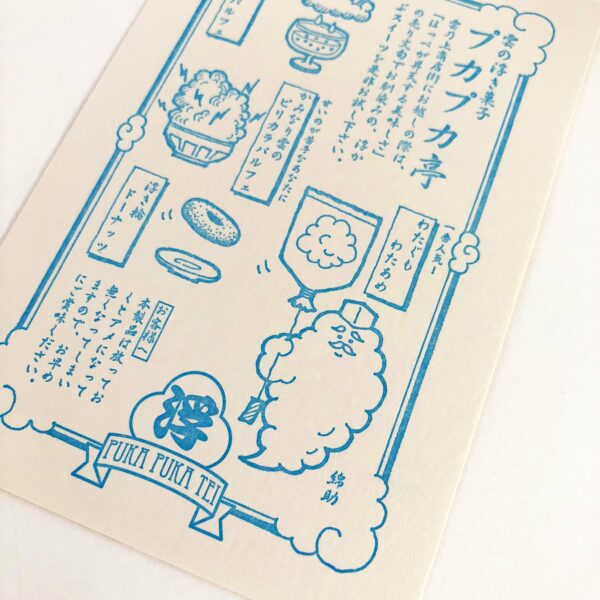 雲の浮き菓子
プカプカ亭
雲乃上商店街にお越しの際は、
「ほっぺが昇天する美味しさ」
の売り文句でお馴染みの、浮か
ぶスイーツを是非お試し下さい。
パルフェ
せいのが苦手なあなたに
かみなり雲の
ピリカラパルフェ
一番人気！
わたぐも
わたあめ
浮き輪
ドーナッツ
お客様へ
本製品は放ってお
くとアメになって
無くなってしまい
ますので、お早め
にご賞味ください。
綿助
浮
PUKA PUKA TEI